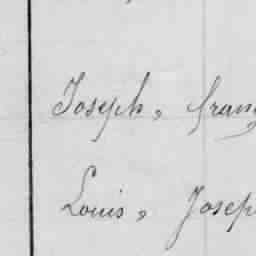 Joseph, Fran
Louis, Josep